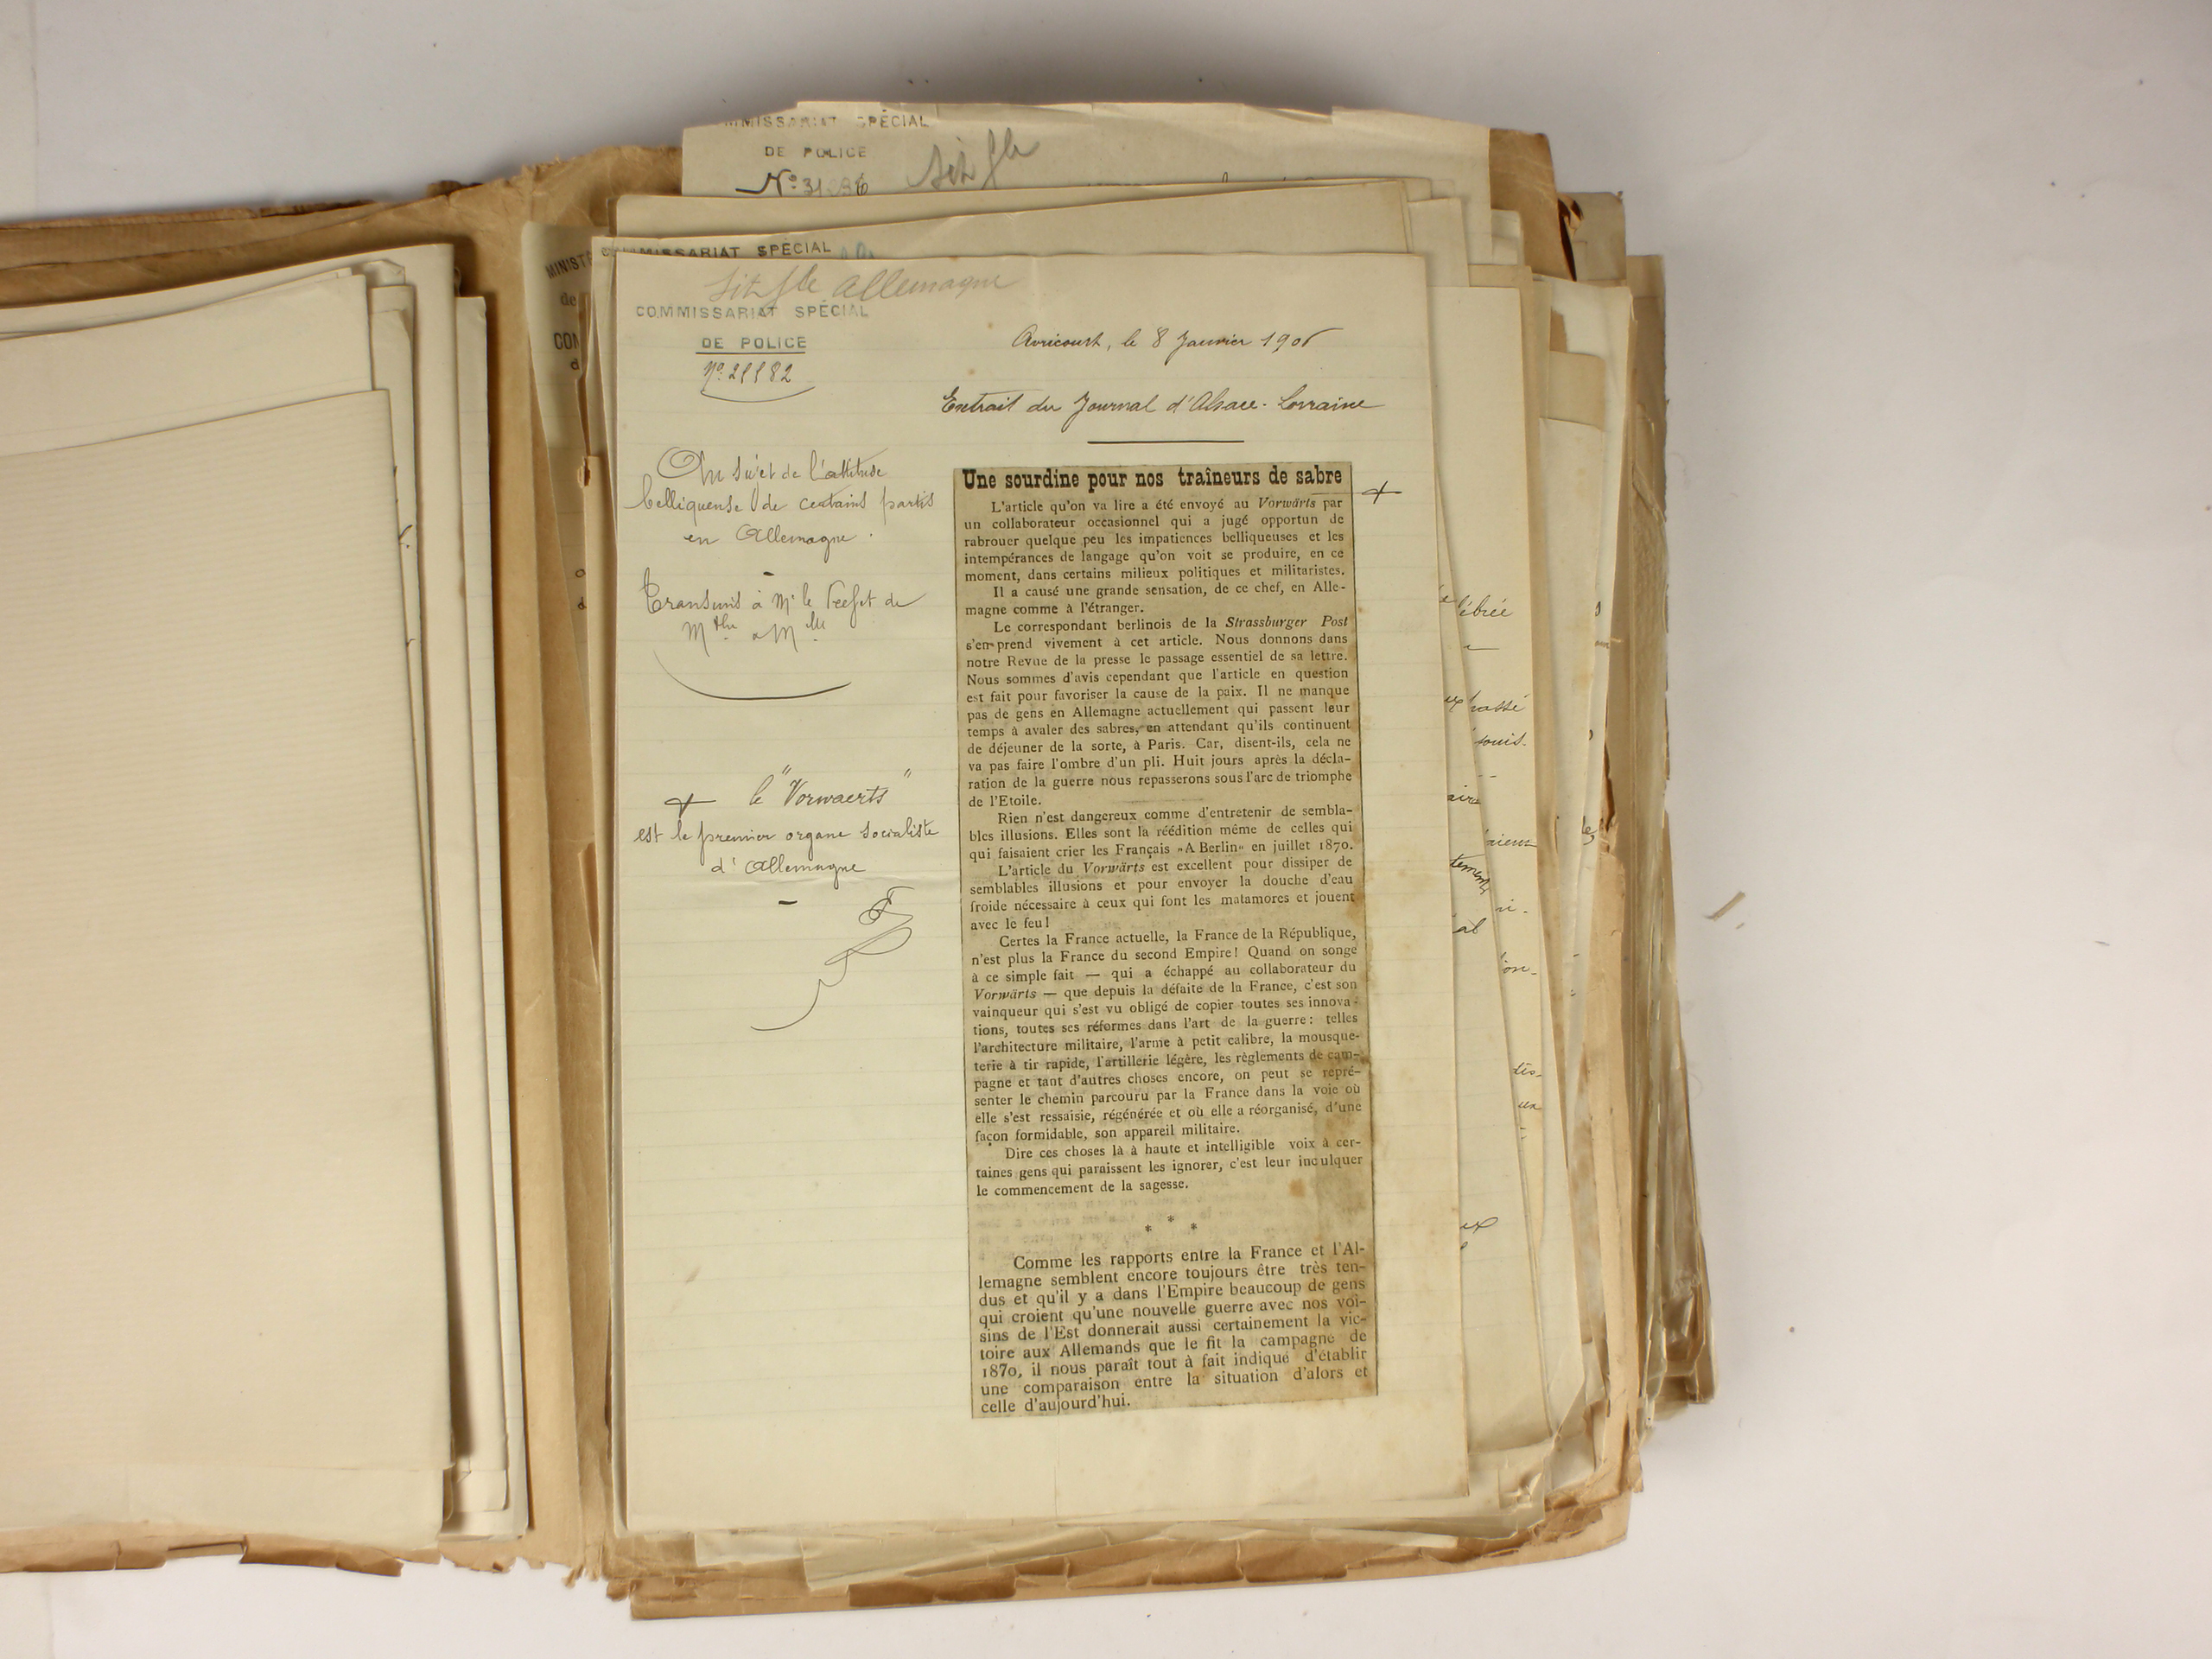 COMMISSARIAT SPÉCIAL
DE POLICE
COMMISSARIAT SPÉCIAL
Sit Gle Allemagne
COMMISSARIAT SPÉCIAL
DE POLICE
Avricourt, le 8 Janvier 1906
Extrait du Journal d'Alsace-Lorraine
Au sujet de l'attitude
belliqueuse de certains partis
en Allemagne.
Transmis à Mr le Préfet de
Mthe & Mlle
+ le "Vorwaerts"
est le premier organe socialiste
d'Allemagne
Une sourdine pour nos traîneurs de sabre +
L'article qu'on va lire a été envoyé au Vorwärts par
un collaborateur occasionnel qui a jugé opportun de
rabrouer quelque peu les impatiences belliqueuses et les
intempérances de langage qu'on voit se produire, en ce
moment, dans certains milieux politiques et militaristes.
Il a causé une grande sensation, de ce chef, en Alle-
magne comme à l'étranger.
Le correspondant berlinois de la Strassburger Post
s'en prend vivement à cet article. Nous donnons dans
notre Revue de la presse le passage essentiel de sa lettre.
Nous sommes d'avis cependant que l'article en question
est fait pour favoriser la cause de la paix. Il ne manque
pas de gens en Allemagne actuellement qui passent leur
temps à avaler des sabres, en attendant qu'ils continuent
de déjeuner de la sorte, à Paris. Car, disent-ils, cela ne
va pas faire l'ombre d'un pli. Huit jours après la décla-
ration de la guerre nous repasserons sous l'arc de triomphe
de l'Etoile.
Rien n'est dangereux comme d'entretenir de sembla-
bles illusions. Elles sont la réédition même de celles qui
qui faisaient crier les Français „A Berlin" en juillet 1870.
L'article du Vorwärts est excellent pour dissiper de
semblables illusions et pour envoyer la douche d'eau
froide nécessaire à ceux qui font les matamores et jouent
avec le feu!
Certes la France actuelle, la France de la République,
n'est plus la France du second Empire! Quand on songe
à ce simple fait — qui a échappé au collaborateur du
Vorwärts — que depuis la défaite de la France, c'est son
vainqueur qui s'est vu obligé de copier toutes ses innova-
tions, toutes ses réformes dans l'art de la guerre: telles
l'architecture militaire, l'arme à petit calibre, la mousque-
terie à tir rapide, l'artillerie légère, les règlements de cam-
pagne et tant d'autres choses encore, on peut se repré-
senter le chemin parcouru par la France dans la voie où
elle s'est ressaisie, régénérée et où elle a réorganisé, d'une
façon formidable, son appareil militaire.
Dire ces choses là à haute et intelligible voix à cer-
taines gens qui paraissent les ignorer, c'est leur inculquer
le commencement de la sagesse.
* * *
Comme les rapports entre la France et l'Al-
lemagne semblent encore toujours être très ten-
dus et qu'il y a dans l'Empire beaucoup de gens
qui croient qu'une nouvelle guerre avec nos voi-
sins de l'Est donnerait aussi certainement la vic-
toire aux Allemands que le fit la campagne de
1870, il nous paraît tout à fait indiqué d'établir
une comparaison entre la situation d'alors et
celle d'aujourd'hui.